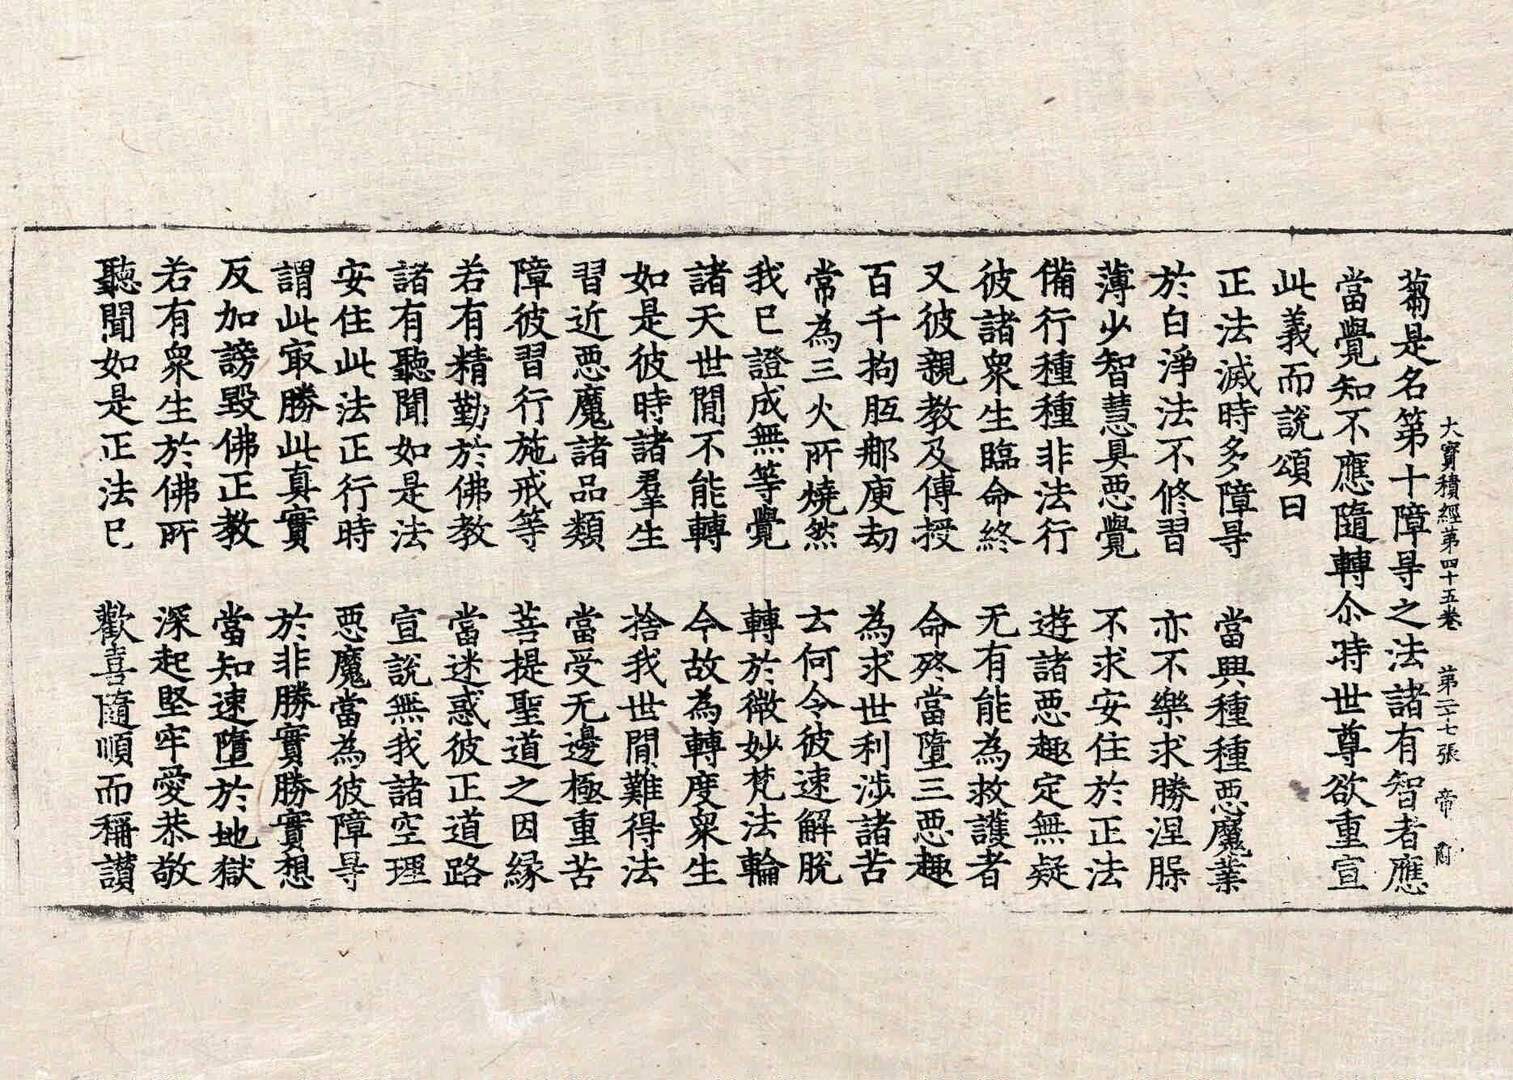 大寶積經第四十五卷　第二十七張　帝
蒭是名第十障㝵之法諸有智者應
當覺知不應隨轉尒時世尊欲重宣
此義而說頌曰
正法滅時多障㝵　當興種種惡魔業
於白淨法不修習　亦不樂求勝涅槃
薄少智慧具惡覺　不求安住於正法
備行種種非法行　遊諸惡趣定無疑
彼諸衆生臨命終　无有能為救護者
又彼親教及傳授　命終當墮三惡趣
百千拘胝那庾劫　為求世利涉諸苦
常為三火所燒然　云何令彼速解脫
我已證成無等覺　轉於微妙梵法輪
諸天世閒不能轉　今故為轉度衆生
如是彼時諸羣生　捨我世閒難得法
習近惡魔諸品類　當受无邊極重苦
障彼習行施戒等　菩提聖道之因緣
若有精勤於佛教　當迷惑彼正道路
諸有聽聞如是法　宣說無我諸空理
安住此法正行時　惡魔當為彼障㝵
謂此㝡勝此真實　於非勝實勝實想
反加謗毀佛正教　當知速墮於地獄
若有衆生於佛所　深起堅牢愛恭敬
聽聞如是正法已　歡喜隨順而稱讚